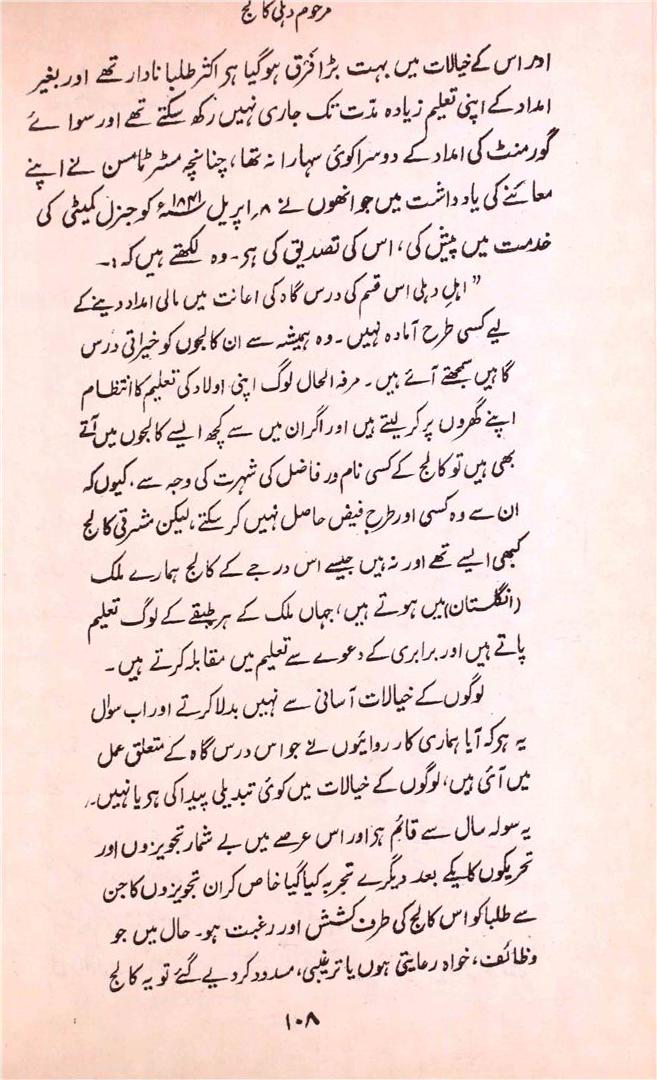 مرحوم دہلی کالج
اور اس کے خیالات میں بہت بڑا فرق ہوگیا ہی اکثر طلبا نادار تھے اور بغیر
امداد کے اپنی تعلیم زیادہ مدّت تک جاری نہیں رکھ سکتے تھے اور سوائے
گورمنٹ کی امداد کے دوسرا کوئی سہارا نہ تھا، چنانچہ مسٹر ٹامسن نے اپنے
معائنے کی یادداشت میں جو انھوں نے ۸؍ اپریل ۱۸۴۱ء کو جنرل کمیٹی کی
خدمت میں پیش کی، اس کی تصدیق کی ہی۔ وہ لکھتے ہیں کہ:۔
”اہلِ دہلی اس قسم کی درس گاہ کی اعانت میں مالی امداد دینے کے
لیے کسی طرح آمادہ نہیں۔ وہ ہمیشہ سے ان کالجوں کو خیراتی درس
گاہیں سمجھتے آئے ہیں۔ مرفہ الحال لوگ اپنی اولاد کی تعلیم کا انتظام
اپنے گھروں پر کر لیتے ہیں اور اگر ان میں سے کچھ ایسے کالجوں میں آتے
بھی ہیں تو کالج کے کسی نام ور فاضل کی شہرت کی وجہ سے، کیوں کہ
ان سے وہ کسی اور طرح فیض حاصل نہیں کر سکتے، لیکن مشرقی کالج
کبھی ایسے تھے اور نہ ہیں جیسے اس درجے کے کالج ہمارے ملک
(انگلستان) میں ہوتے ہیں، جہاں ملک کے ہر طبقے کے لوگ تعلیم
پاتے ہیں اور برابری کے دعوے سے تعلیم میں مقابلہ کرتے ہیں۔
لوگوں کے خیالات آسانی سے نہیں بدلا کرتے اور اب سوال
یہ ہی کہ آیا ہماری کارروائیوں نے جو اس درس گاہ کے متعلق عمل
میں آئی ہیں، لوگوں کے خیالات میں کوئی تبدیلی پیدا کی ہی یا نہیں۔
یہ سولہ سال سے قائم ہی اور اس عرصے میں بے شمار تجویزوں اور
تحریکوں کا یکے بعد دیگرے تجربہ کیا گیا خاص کر ان تجویزوں کا جن
سے طلبا کو اس کالج کی طرف کشش اور رغبت ہو۔ حال میں جو
وظائف، خواہ رعایتی ہوں یا ترغیبی، مسدود کردیے گئے تو یہ کالج
۱۰۸